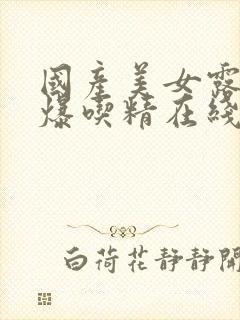 國産美女露
爆喫精在綫
白荷花靜靜開